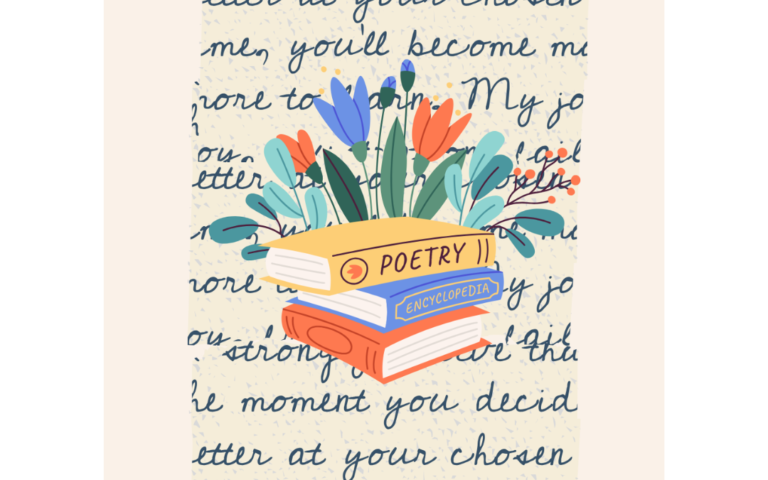 etter at your chosen
me, you'll become mo
more to arn. My jo
ou. ail
etter at your osen
me
POETRY
ore y jo
ENCYCLOPEDIA
ou. ail
strong
he moment you decid
etter at your chosen